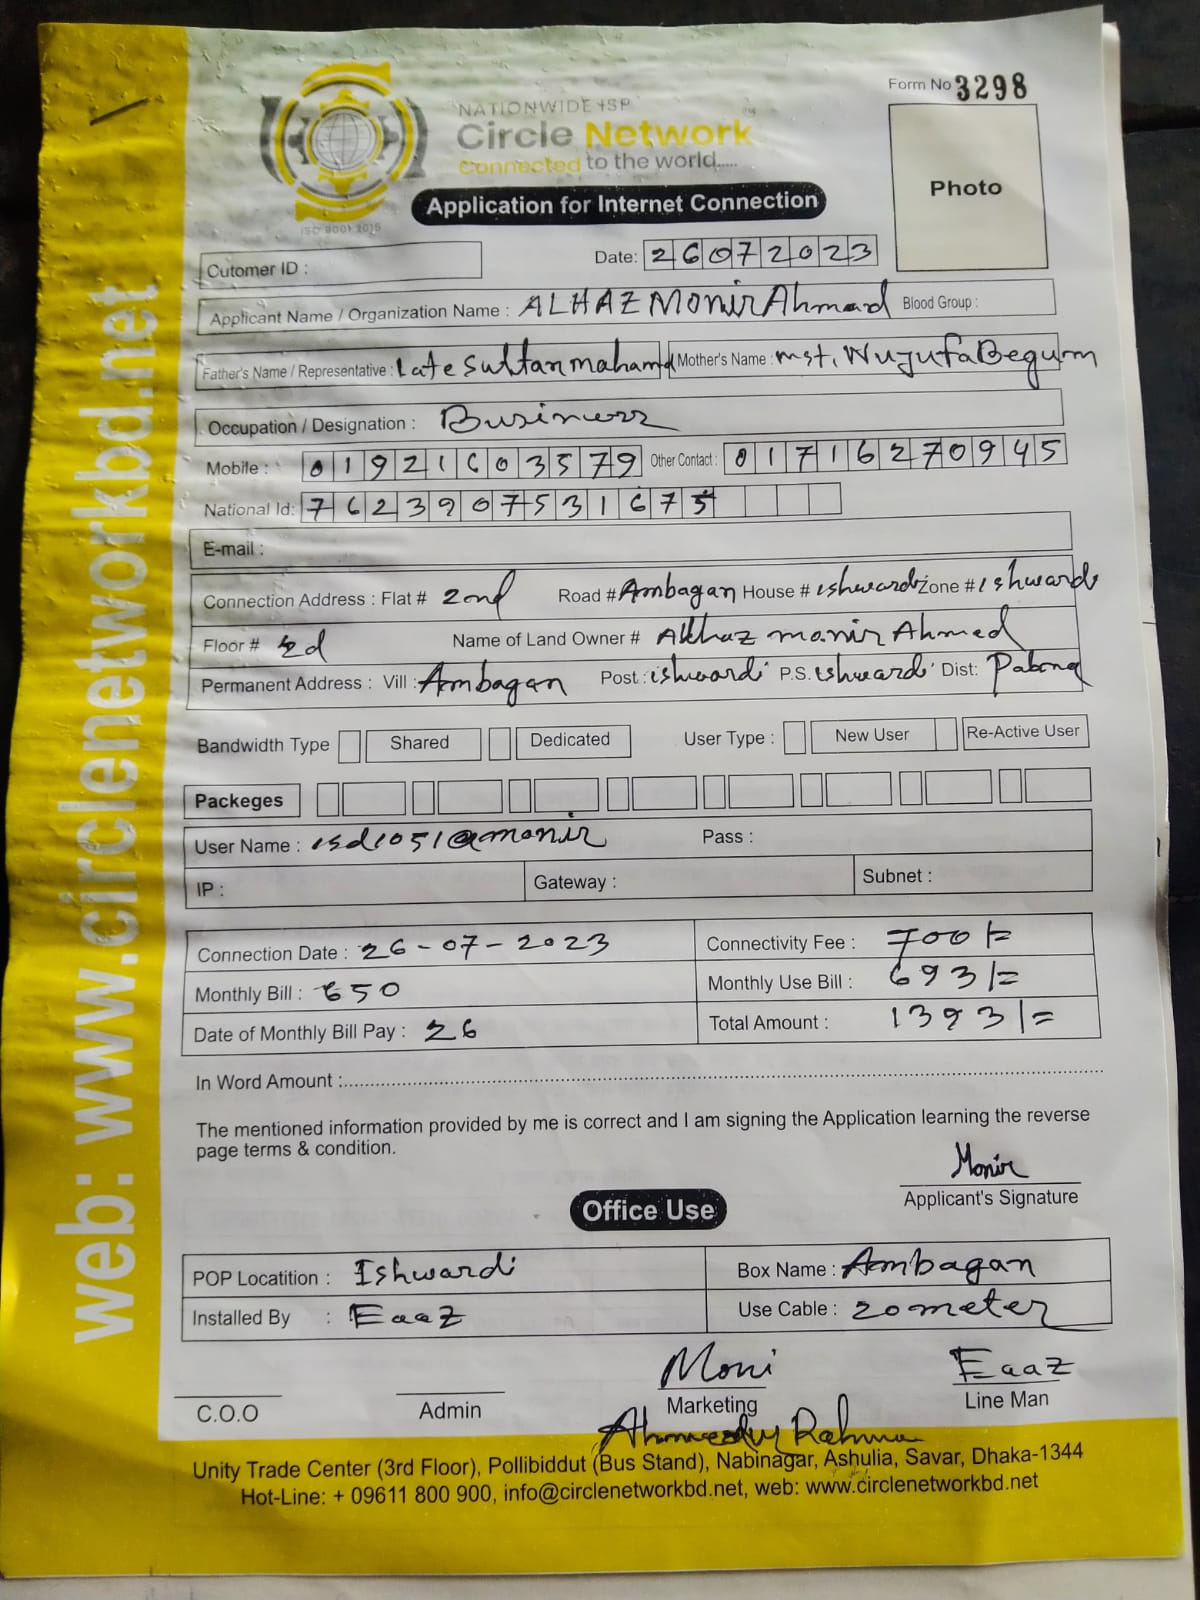 Form No 3298
NATIONWIDE ISP
Circle Network
Connected to the world.....
ISO 9001:2015
Photo
Application for Internet Connection
Cutomer ID :
Date: 26072023
Applicant Name / Organization Name : ALHAZ Monir Ahmad Blood Group :
Father's Name / Representative : Late Sultan mahamd Mother's Name : mst. Wujufa Begum
Occupation / Designation : Business
Mobile : 01921603579 Other Contact : 01716270945
National Id: 7623907531675
E-mail :
Connection Address : Flat # 2nd Road # Ambagan House # ishwardi Zone # ishwardi
Floor # 2d Name of Land Owner # Alhaz monir Ahmed
Permanent Address : Vill : Ambagan Post : ishwardi P.S. ishwardi Dist: Pabna
Bandwidth Type Shared Dedicated User Type : New User Re-Active User
Packeges
User Name : isd1051@monir Pass :
IP : Gateway : Subnet :
Connection Date : 26-07-2023 Connectivity Fee : 700/=
Monthly Bill : 650 Monthly Use Bill : 693/=
Date of Monthly Bill Pay : 26 Total Amount : 1393/=
In Word Amount :
The mentioned information provided by me is correct and I am signing the Application learning the reverse
page terms & condition.
Monir
Applicant's Signature
Office Use
POP Locatition : Ishwardi Box Name : Ambagan
Installed By : Eaaz Use Cable : 20 meter
Moni Eaaz
C.O.O Admin Marketing Line Man
Unity Trade Center (3rd Floor), Pollibiddut (Bus Stand), Nabinagar, Ashulia, Savar, Dhaka-1344
Hot-Line: + 09611 800 900, info@circlenetworkbd.net, web: www.circlenetworkbd.net
web: www.circlenetworkbd.net